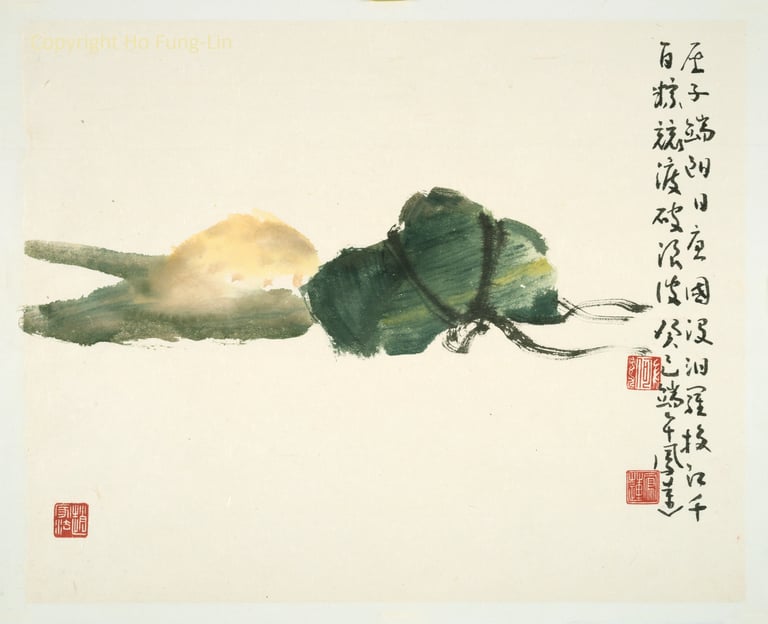 Copyright Ho Fung-Lin
屈子端阳日國没汨羅投江千
百粽競渡破浪波癸巳端午鳳蓮
鳳蓮